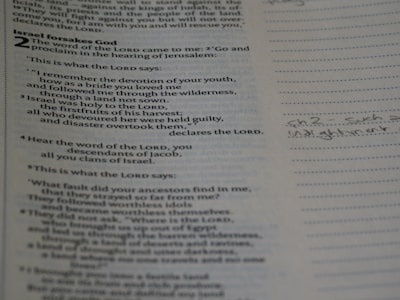 land.
They will fight against you but will not over-
come you, for I am with you and will rescue you,"
declares the LORD.
Israel forsakes God
2 The word of the LORD came to me: 2 "Go and
proclaim in the hearing of Jerusalem:
"This is what the LORD says:
"'I remember the devotion of your youth,
how as a bride you loved me
and followed me through the wilderness,
through a land not sown.
3 Israel was holy to the LORD,
the firstfruits of his harvest;
all who devoured her were held guilty,
and disaster overtook them,'"
declares the LORD.
4 Hear the word of the LORD, you
descendants of Jacob,
all you clans of Israel.
5 This is what the LORD says:
"What fault did your ancestors find in me,
that they strayed so far from me?
They followed worthless idols
and became worthless themselves.
6 They did not ask, 'Where is the LORD,
who brought us up out of Egypt
and led us through the barren wilderness,
through a land of deserts and ravines,
a land of drought and utter darkness,
a land where no one travels and no one
lives?'
7 I brought you into a fertile land
to eat its fruit and rich produce.
But you came and defiled my land
Such